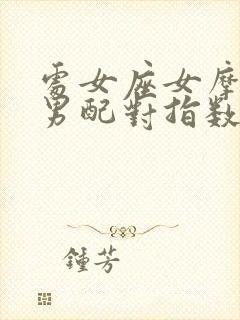 處女座女摩
男配對指数
鍾芳